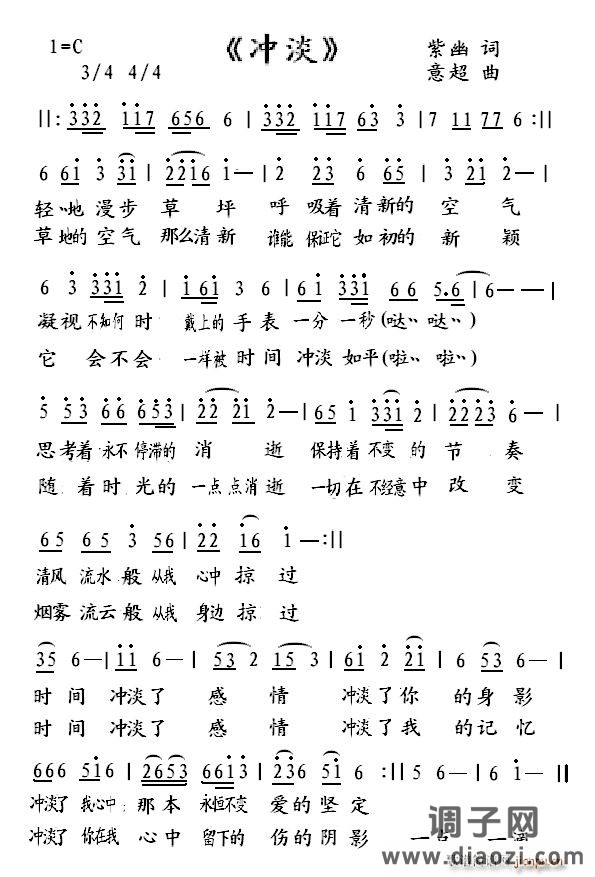 1=C
3/4 4/4
《冲淡》
紫幽 词
意超 曲
||: 332 117 656 6 | 332 117 63 3 | 7 11 77 6 :||
6 61 3 31 | 2216 1— | 2 23 6 65 | 3 21 2—
轻地漫步草坪呼吸着清新的空气
草地的空气那么清新谁能保证它如初的新颖
6 3 331 2 | 161 3 6 | 61 331 66 5.6 | 6—|
凝视不知何时戴上的手表一分一秒(哒哒)
它会不会一样被时间冲淡如平(啦啦)
5 53 66 653 | 22 21 2— | 65 1 331 2 | 2223 6—
思考着永不停滞的消逝保持着不变的节奏
随着时光的一点点消逝一切在不经意中改变
65 65 3 56 | 22 16 1—:||
清风流水般从我心中掠过
烟雾流云般从我身边掠过
35 6— | 11 6— | 53 2 15 3 | 61 2 21 | 6 53 6—|
时间冲淡了感情冲淡了你的身影
时间冲淡了感情冲淡了我的记忆
666 516 | 2653 6613 | 236 51 6 :|| 5— 6— | 6 1—||
冲淡了我心中那本永恒不变爱的坚定
冲淡了你在我心中留下的伤的阴影一点一滴
调子网
www.diaozi.com